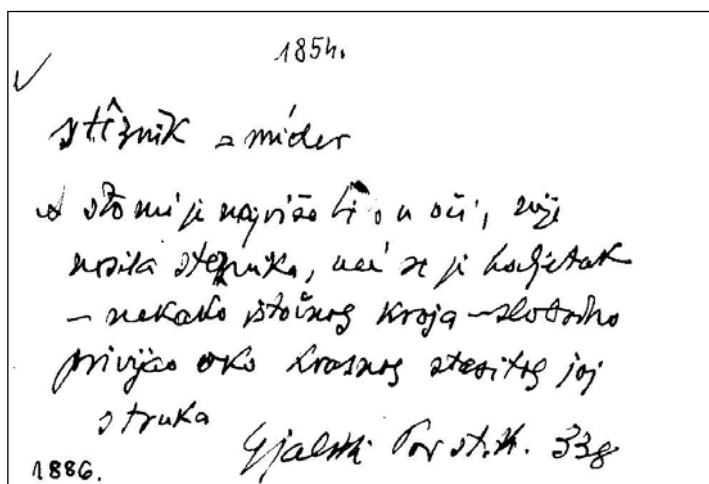 1854.
stêznīk = míder
A što mi je najviše bi o u oči, nije
nosila steznika, već se je haljetak
– nekako istočnog kroja – slobodno
privijao oko krasnog stasitog joj
struka
Gjalski Pov st. 33
1886.